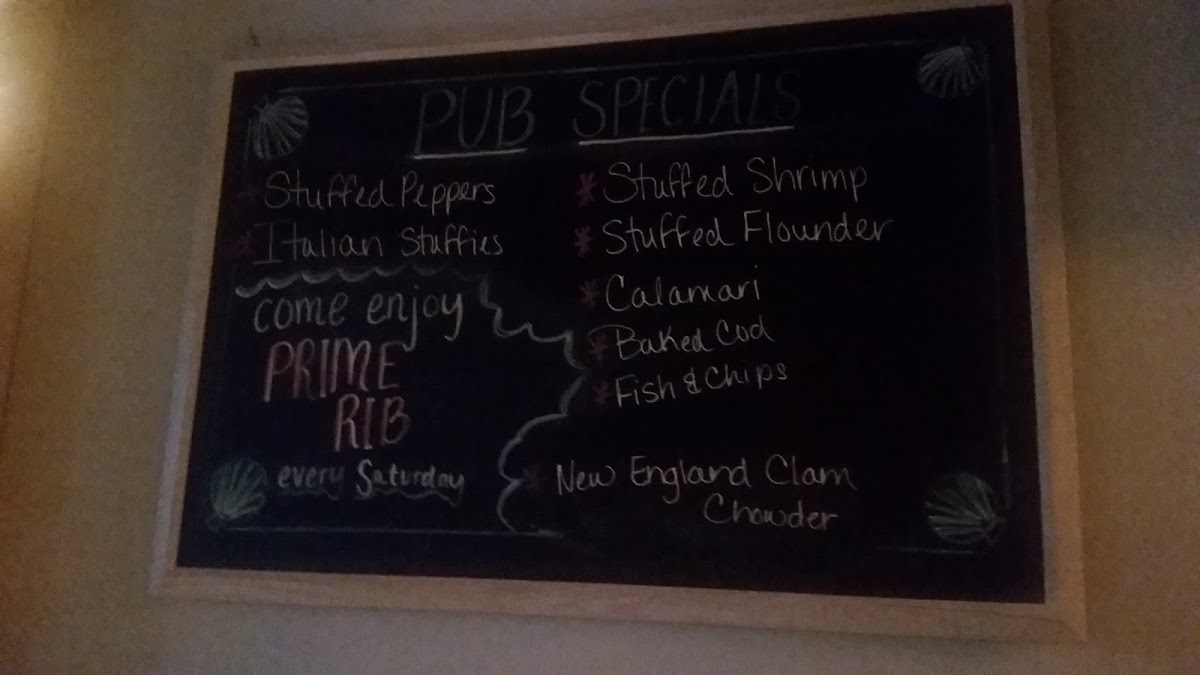 PUB SPECIALS
* Stuffed Peppers
* Italian Stuffies
come enjoy
PRIME
RIB
every Saturday
* Stuffed Shrimp
* Stuffed Flounder
* Calamari
* Baked Cod
* Fish & Chips
* New England Clam
Chowder